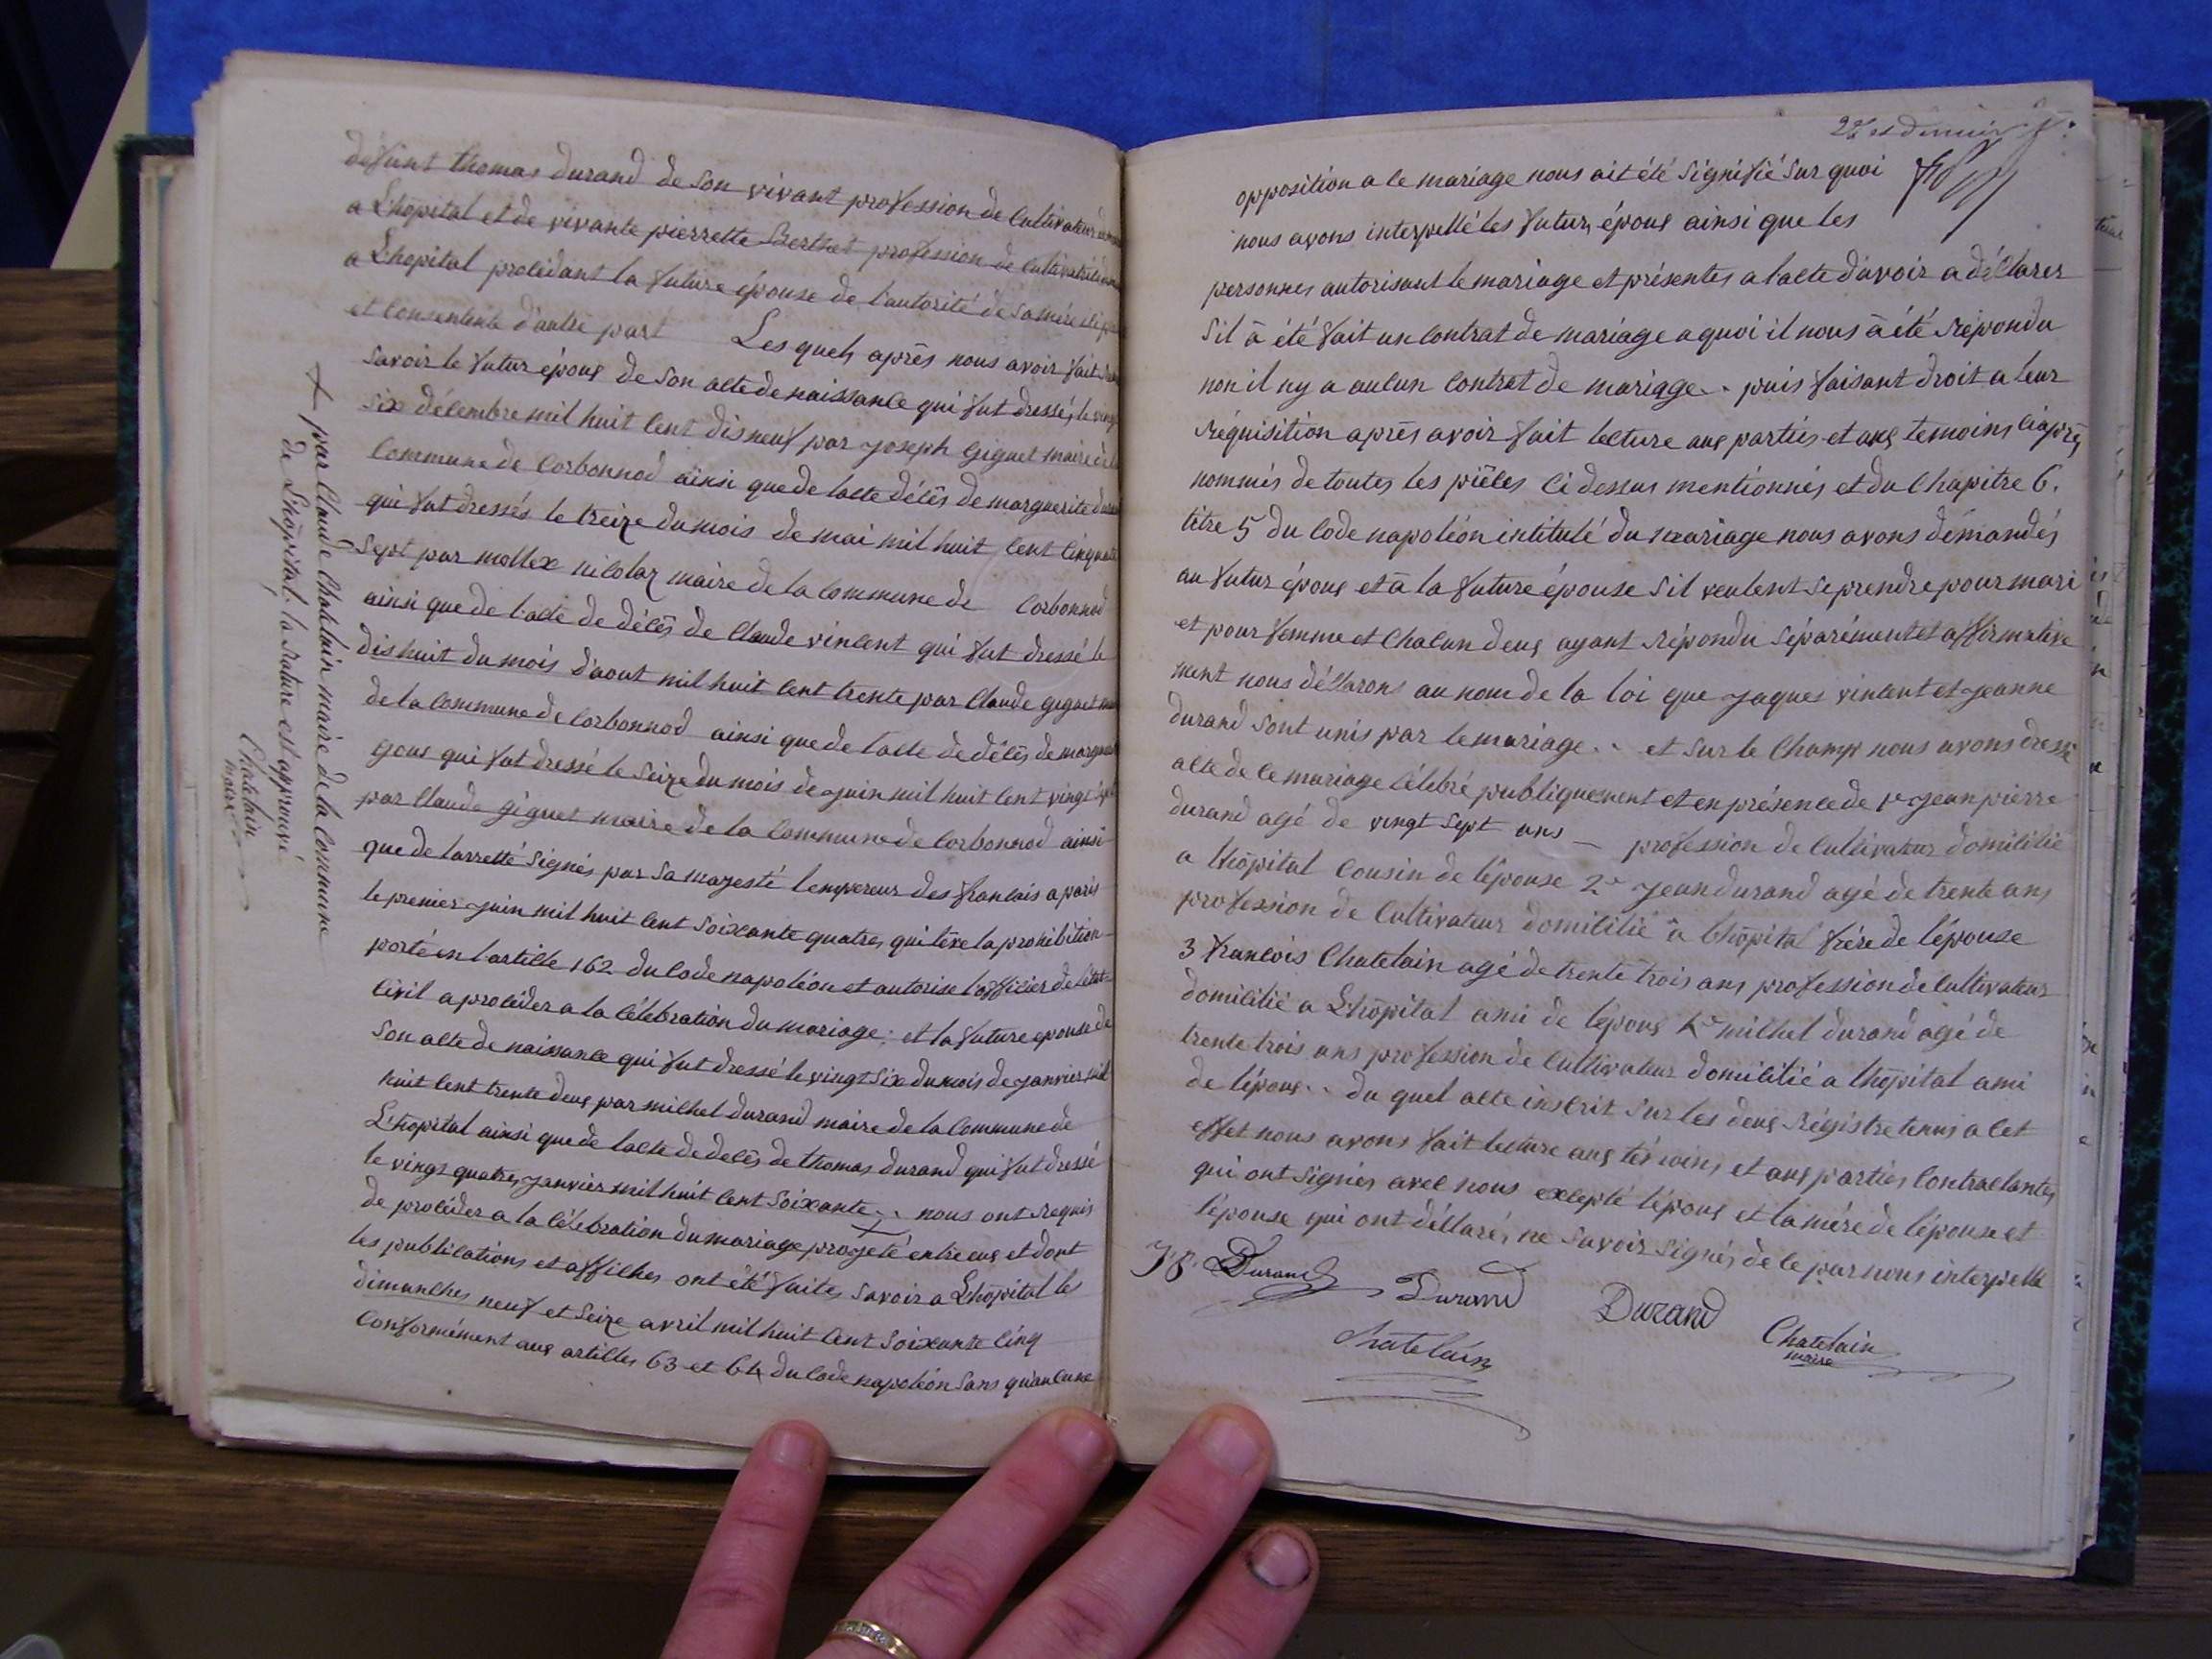 défunt thomas durand de son vivant profession de cultivateur
a L'hôpital et de vivante pierrette Berthet profession de cultivatrice
a L'hôpital procédant la future épouse de l'autorité de sa mère
et consentente d'autre part Les quels après nous avoir fait
savoir le futur époux de son acte de naissance qui fut dressé, le vingt
six décembre mil huit cent disneuf par Joseph Giguet maire de la
commune de Corbonnod ainsi que de lacte décès de marguerite durand
qui fut dressés le treize du mois de mai mil huit cent cinquante
sept par mollex nicolas maire de la commune de Corbonnod
ainsi que de l'acte de décès de Claude vincent qui fut dressé le
dishuit du mois d'aout mil huit cent trente par Claude giguet
de la commune de Corbonnod ainsi que de lacte de décès de
Goux qui fut dressé le seize du mois de juin mil huit cent vingt
par Claude giguet maire de la commune de Corbonnod ainsi
que de larretté signés par sa majesté l'empereur des francais a paris
le premier juin mil huit cent soixante quatre, qui lève la prohibition
porté en l'article 162 du code napoléon et autorise l'officier de l'état
civil a procéder a la célébration du mariage : et la future epouse de
son acte de naissance qui fut dressé le vingt six du mois de janvier mil
huit cent trente deux par michel durand maire de la commune de
L'hopital ainsi que de lacte de decès de thomas durand qui fut dressé
le vingt quatre, janvier mil huit cent soixante .. nous ont requis
de procéder a la célébration du mariage projeté entre eux et dont
les publications et affiches ont été faites savoir a L'hôpital les
dimanches neuf et seize avril mil huit cent soixante cinq
conformément aux articles 63 et 64 du code napoléon sans qu'aucune
+ par Claude Chatelain maire de la commune
de L'hôpital. la rature est approuvé
Chatelain
maire
2e et dernier
opposition a ce mariage nous ait été signifié sur quoi
nous avons interpellé les futur, époux ainsi que les
personnes autorisant le mariage et présentes a l'acte d'avoir a déclarer
s'il à été fait un contrat de mariage a quoi il nous à été répondu
non il ny a aucun contrat de mariage .. puis faisant droit a leur
réquisition après avoir fait lecture aux parties et aux temoins ciaprès
nommés de toutes les pièces ci dessus mentionnés et du chapitre 6.
titre 5 du code napoléon intitulé du mariage nous avons démandés
au futur époux et à la future épouse s'il veulent se prendre pour mari
et pour femme et chacun deux ayant répondu séparément et affirmative
ment nous déclarons au nom de la loi que Jaques vincent et Jeanne
durand sont unis par le mariage .. et sur le champ nous avons dressé
acte de ce mariage célébré publiquement et en présence de 1er Jean pierre
durand agé de vingt sept ans — profession de cultivateur domicilié
a l'hôpital cousin de l'épouse 2e Jean durand agé de trente ans
profession de cultivateur domicilié à l'hôpital frère de l'épouse
3 francois Chatelain agé de trente trois ans profession de cultivateur
domicilié a L'hôpital ami de l'époux 4e michel durand agé de
trente trois ans profession de cultivateur domicilié a l'hôpital ami
de l'époux .. du quel acte inscrit sur les deux régistre tenus a cet
effet nous avons fait lecture aux témoins et aux parties contractantes
qui ont signés avec nous excepté l'époux et la mére de l'épouse et
l'épouse qui ont déclaré, ne savoir signés de ce par nous interpellé
J P. Durand Durand Durand Chatelain
maire
Chatelain